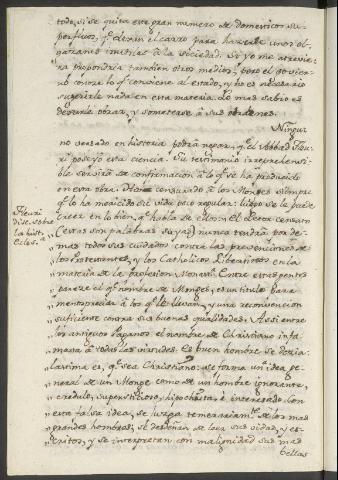 todo, si se quita este gran numero de domesticos su-
perfluos, qe dexan el campo para hacerse unos ol-
gazanes inutiles à la sociedad. Si yo me atreviera
propondria tambien otros medios, pero el govier-
no conoce lo qe conviene al estado, y no es necesario
sugerirle nada en esta materia. Lo mas sabio es
dexarle obrar, y someterse à sus ordenes.
Ningun
no versado en historia podra negar, qe el Abbad Fleu-
ri poseyó esta ciencia. Su testimonio irreprehensi-
ble servirá de confirmacion à lo qe se ha producido
en esta obra. Ha censurado à los Monges siempre
qe lo ha merecido su vida poco regular: luego se le puede
creer en lo bien, qe habla de ellos. El Lector censato
(estas son palabras suyas) nunca tendrá por de-
mas todos sus cuidados contra las prevenciones de
los Protestantes, y los Catholicos Libertinos en la
materia de la profesion Monast.ca Entre estas gentes
parece el qe nombre de Monge, es un titulo para
menospreciar à los qe le llevan, y una reconvencion
suficiente contra sus buenas qualidades. Assi entre
los antiguos Paganos el nombre de Christiano infa-
maba à todas las virtudes. Es buen hombre se decia:
lastima es, qe sea Christiano: se forma un idea ge-
neral de un Monge como de un hombre ignorante,
credulo, supersticioso, hipochrita è interesado. Con
esta falsa idea, se juzga temerariamte de los mas
grandes hombres; se desdeñan de leer sus vidas, y es-
critos, y se interpretan con malignidad sus mas
bellas
Fleuri
disc. sobre
la hist.
Ecles.a